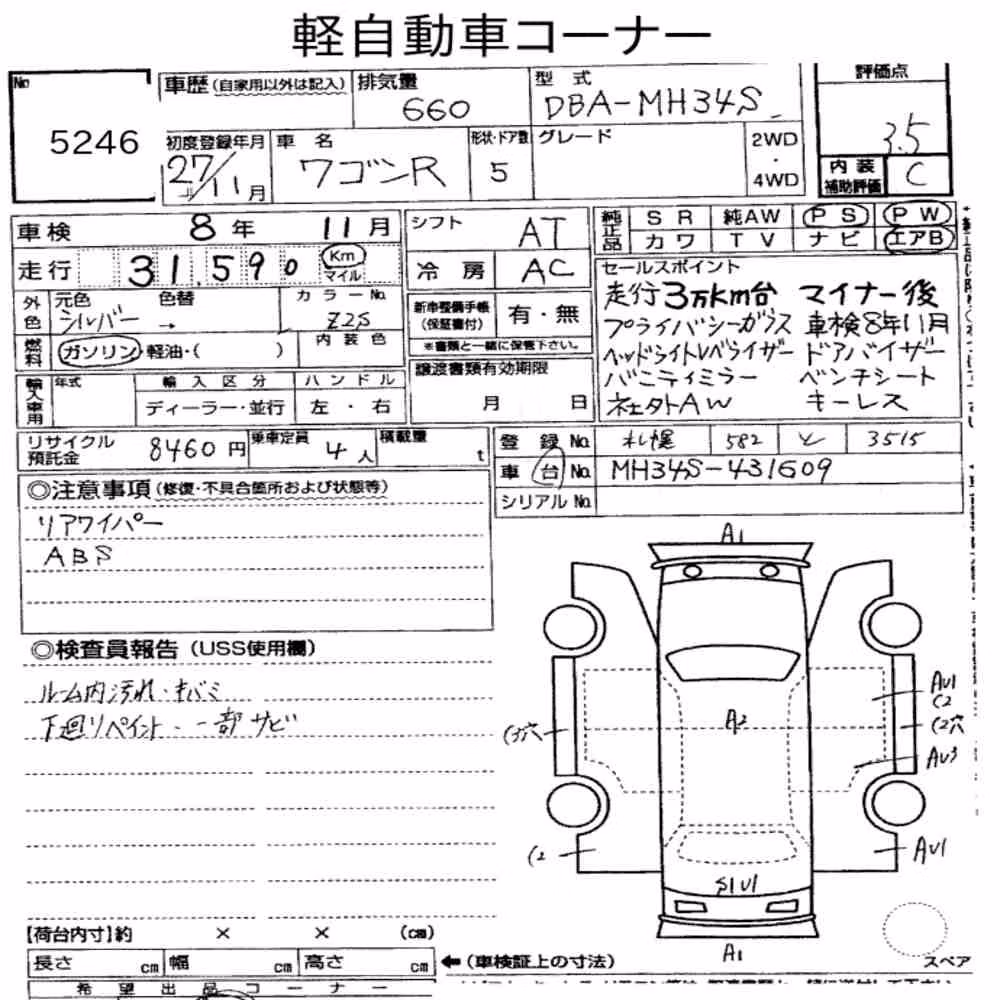 軽自動車コーナー
No 5246
車歴 (自家用以外は記入)
排気量 660
型式 DBA-MH34S
評価点 3.5
初度登録年月 27/11月
車名 ワゴンR
形状・ドア数 5
グレード
2WD・4WD
内装補助評価 C
車検 8年 11月
シフト AT
純正品 SR 純AW PS PW
カワ TV ナビ エアB
走行 31,590 Km マイル
冷房 AC
セールスポイント
走行3万km台 マイナー後
プライバシーガラス 車検8年11月
ヘッドライトレベライザー ドアバイザー
バニティミラー ベンチシート
AW キーレス
外色 元色 色替 カラーNo.
シルバー → Z2S
新車整備手帳(保証書付) 有・無
※書類と一緒に保管下さい。
燃料 ガソリン・軽油・( )
内装色
譲渡書類有効期限
月 日
輸入車用 年式 輸入区分 ハンドル
ディーラー・並行 左・右
リサイクル預託金 8460円
乗車定員 4人
積載量 t
登録No. 札幌 582 と 3515
車台No. MH34S-431609
シリアルNo.
◎注意事項(修復・不具合箇所および状態等)
リアワイパー
ABS
◎検査員報告(USS使用欄)
ルーム内汚れ・キバミ
下廻リペイント・一部サビ
A1
AU1
C2
A2
C2穴
C3穴
AU3
C2
AU1
S1U1
A1
スペア
【荷台内寸】約 × × (cm)
長さ cm 幅 cm 高さ cm
←(車検証上の寸法)
希望出品コーナー